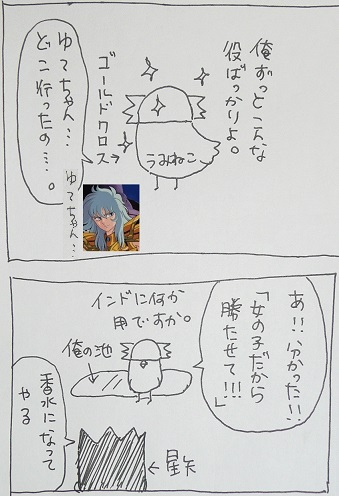 俺ずっとこんな
役ばっかりよ。
ゴールドクロス
うみねこ
ゆてちゃん…
どこ行ったの…。
ゆてちゃん…
あ!!分かった!!
「女の子だから
勝たせて!!!」
インドに何か
用ですか。
俺の池
香水になって
やる
←星矢